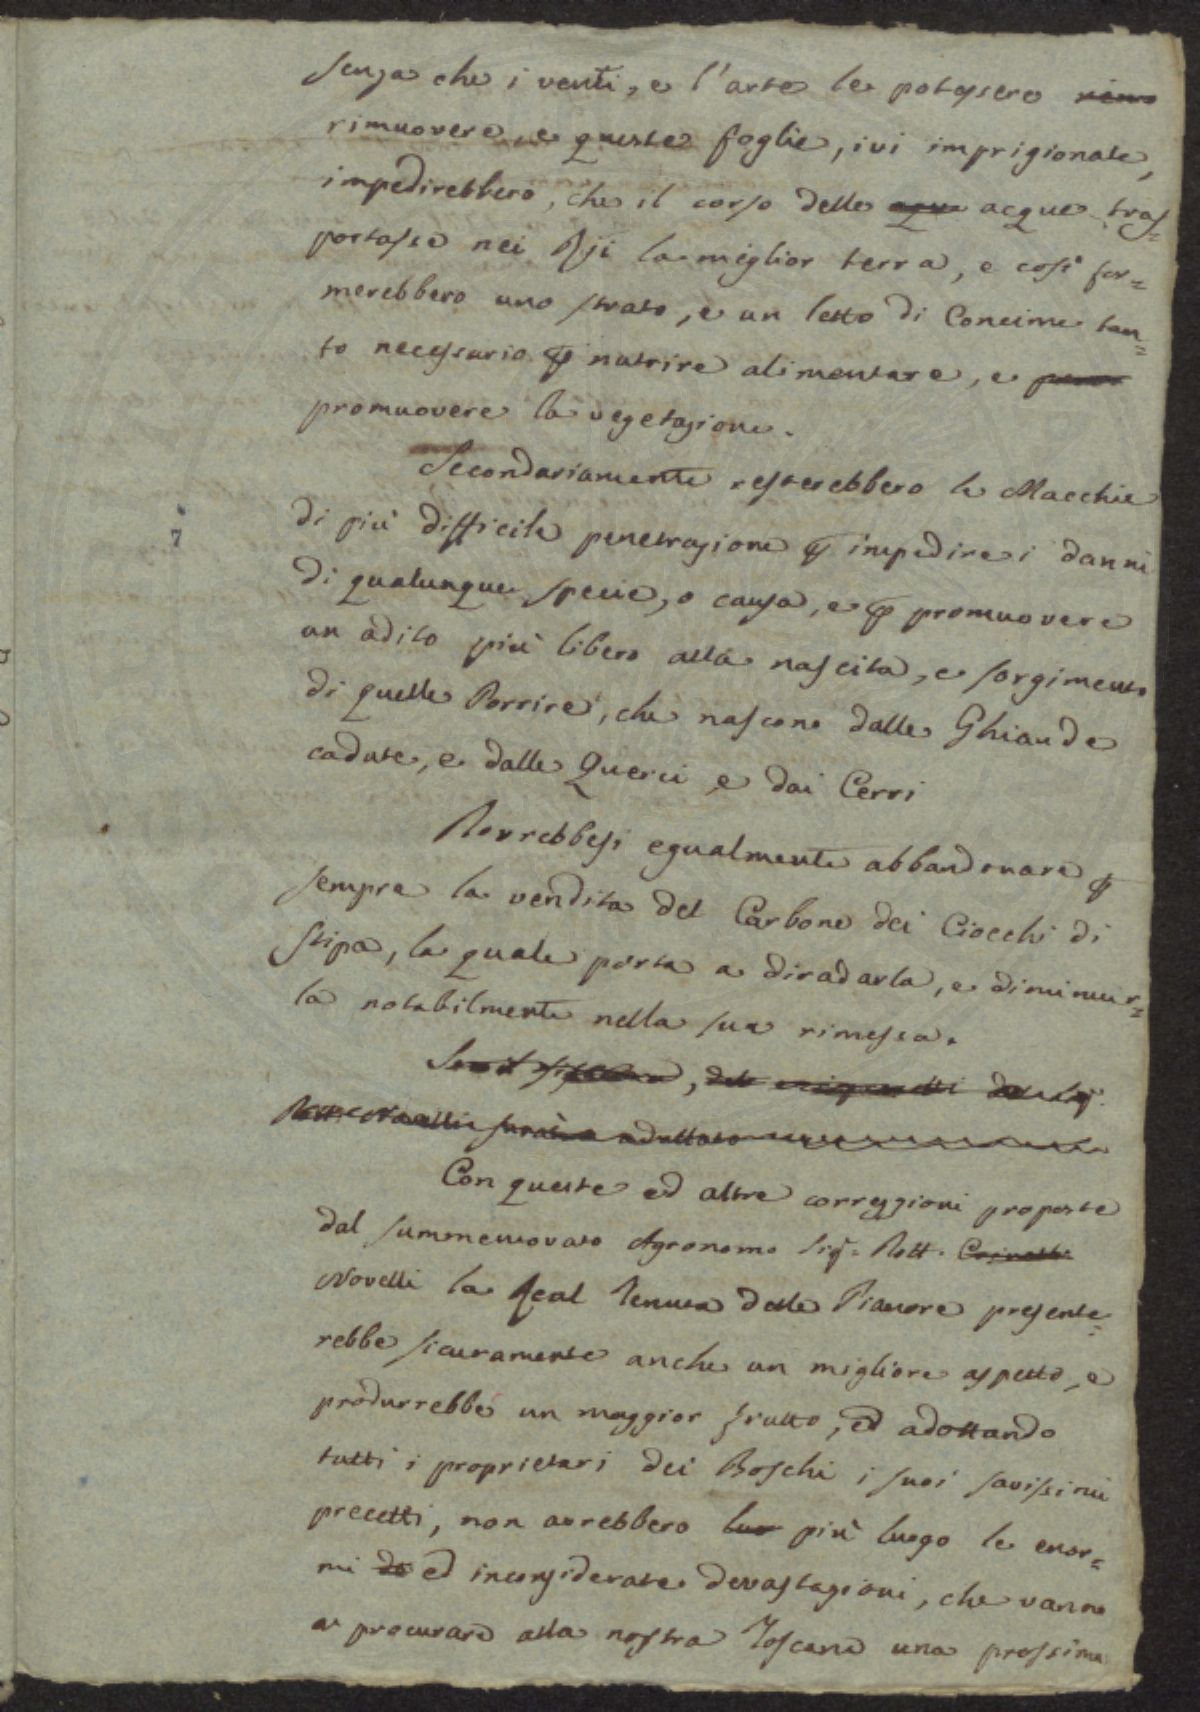 senza che i venti, e l'arte le potessero rimo
rimuovere, e queste foglie, ivi imprigionate,
impedirebbero, che il corso delle aque acque tras=
portasse nei Rji la miglior terra, e così for=
merebbero uno strato, e un letto di Concime tan=
to necessario p nutrire alimentare, e
promuovere la vegetazione.
Secondariamente resterebbero le Macchie
di più difficile penetrazione p impedire i danni
7
di qualunque specie, o causa, e p promuovere
un adito più libero alla nascita, e sorgimento
di quelle Porrire, che nascono dalle Ghiande
cadute, e dalle Querci e dai Cerri
Dovrebbesi egualmente abbandonare p
sempre la vendita del Carbone dei Ciocchi di
Stipa, la quale porta a diradarla, e diminuir=
la notabilmente nella sua rimessa.
Se il sistema, dal Sig.
Dott. Novelli sarà adottato
Con queste ed altre correzzioni proposte
dal summentovato Agronomo Sig. Dott.
Novelli la Real Tenuta delle Pianore presente=
rebbe sicuramente anche un migliore aspetto, e
produrrebbe un maggior frutto, ed adottando
tutti i proprietari dei Boschi i suoi savissimi
precetti, non avrebbero luo più luogo le enor=
mi de ed inconsiderate devastazioni, che vanno
a procurare alla nostra Toscana una prossima